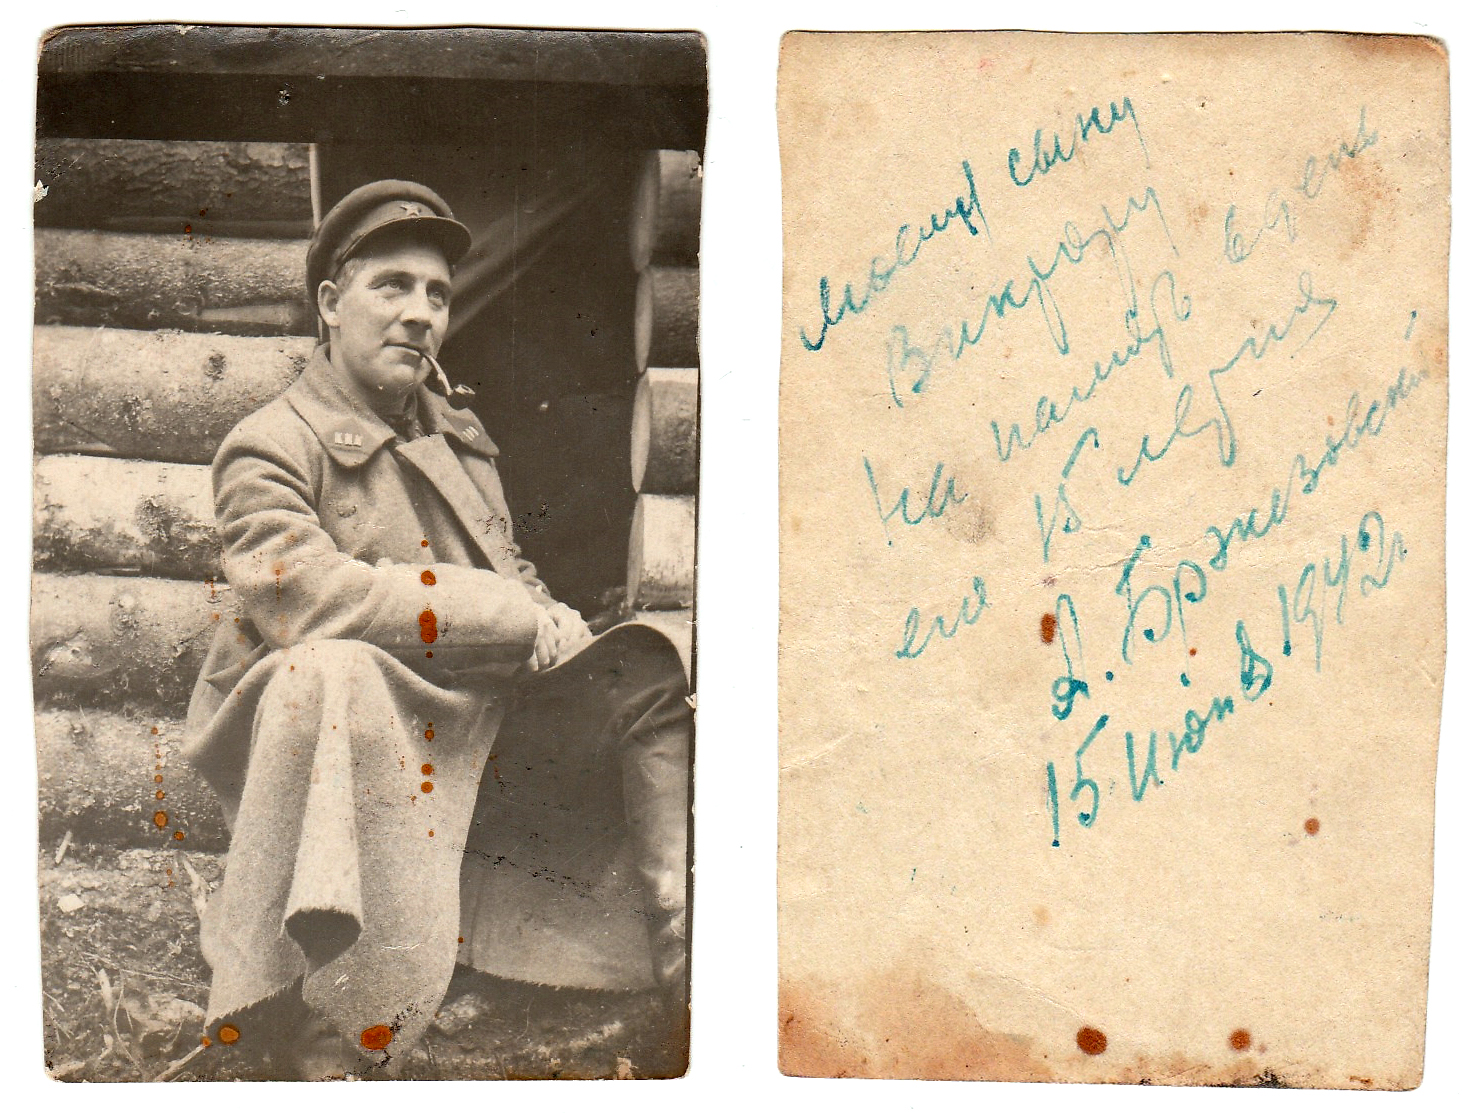 моему сыну
Виктору
на память в день
его 15 летия
А. Бржезовский
15 Июня 1942 г